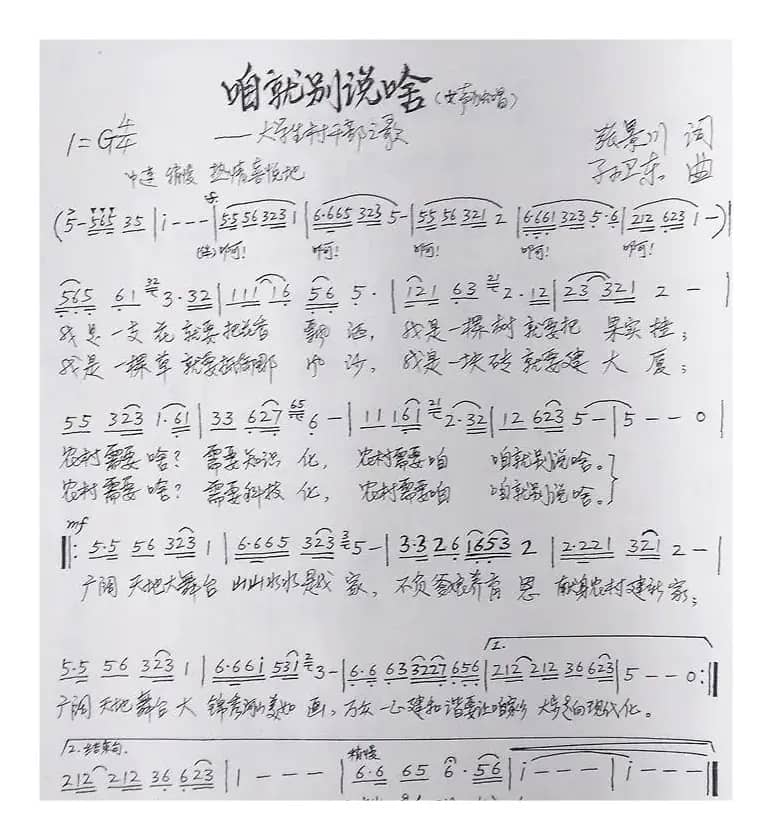 咱就别说啥(女声小合唱)
1=G 4/4 ——大学生村干部之歌 张景川 词
中速 稍慢 热情喜悦地 孙卫东 曲
(5- 565 35 | i - - - | 5·5 56 323 1 | 6·665 323 5- | 55 56 321 2 | 6·661 323 5·6 | 212 623 1 -) |
啊呵! 啊呵! 啊呵! 啊呵! 啊呵!
565 61 3·32 | 111 16 56 5· | 121 63 2·12 | 23 321 2 - |
我是一支花就要把花香 飘洒, 我是一棵树就要把 果实挂;
我是一棵草就要抵御那 风沙, 我是一块砖就要建大厦;
55 323 1·61 | 33 627 6 - | 11 161 2·32 | 12 623 5 - | 5 - - 0 |
农村需要啥?需要知识化, 农村需要咱 咱就别说啥。
农村需要啥?需要科技化, 农村需要咱 咱就别说啥。
mf
‖: 5·5 56 323 1 | 6·665 323 5 - | 3·3 26 1653 2 | 2·221 321 2 - |
广阔天地大舞台 山山水水是我家, 不负爹娘养育恩 献身农村建新家;
1.
5·5 56 323 1 | 6·66i 531 3 - | 6·6 63 3227 656 | 212 212 36 623 | 5 - - 0 :‖
广阔天地舞台大 锦秀河山美如画, 万众一心建和谐要让咱家乡 大步走向现代化。
2.结束句. 稍慢
212 212 36 623 | 1 - - - | 6·6 65 6·56 | i - - - | i - - - ‖